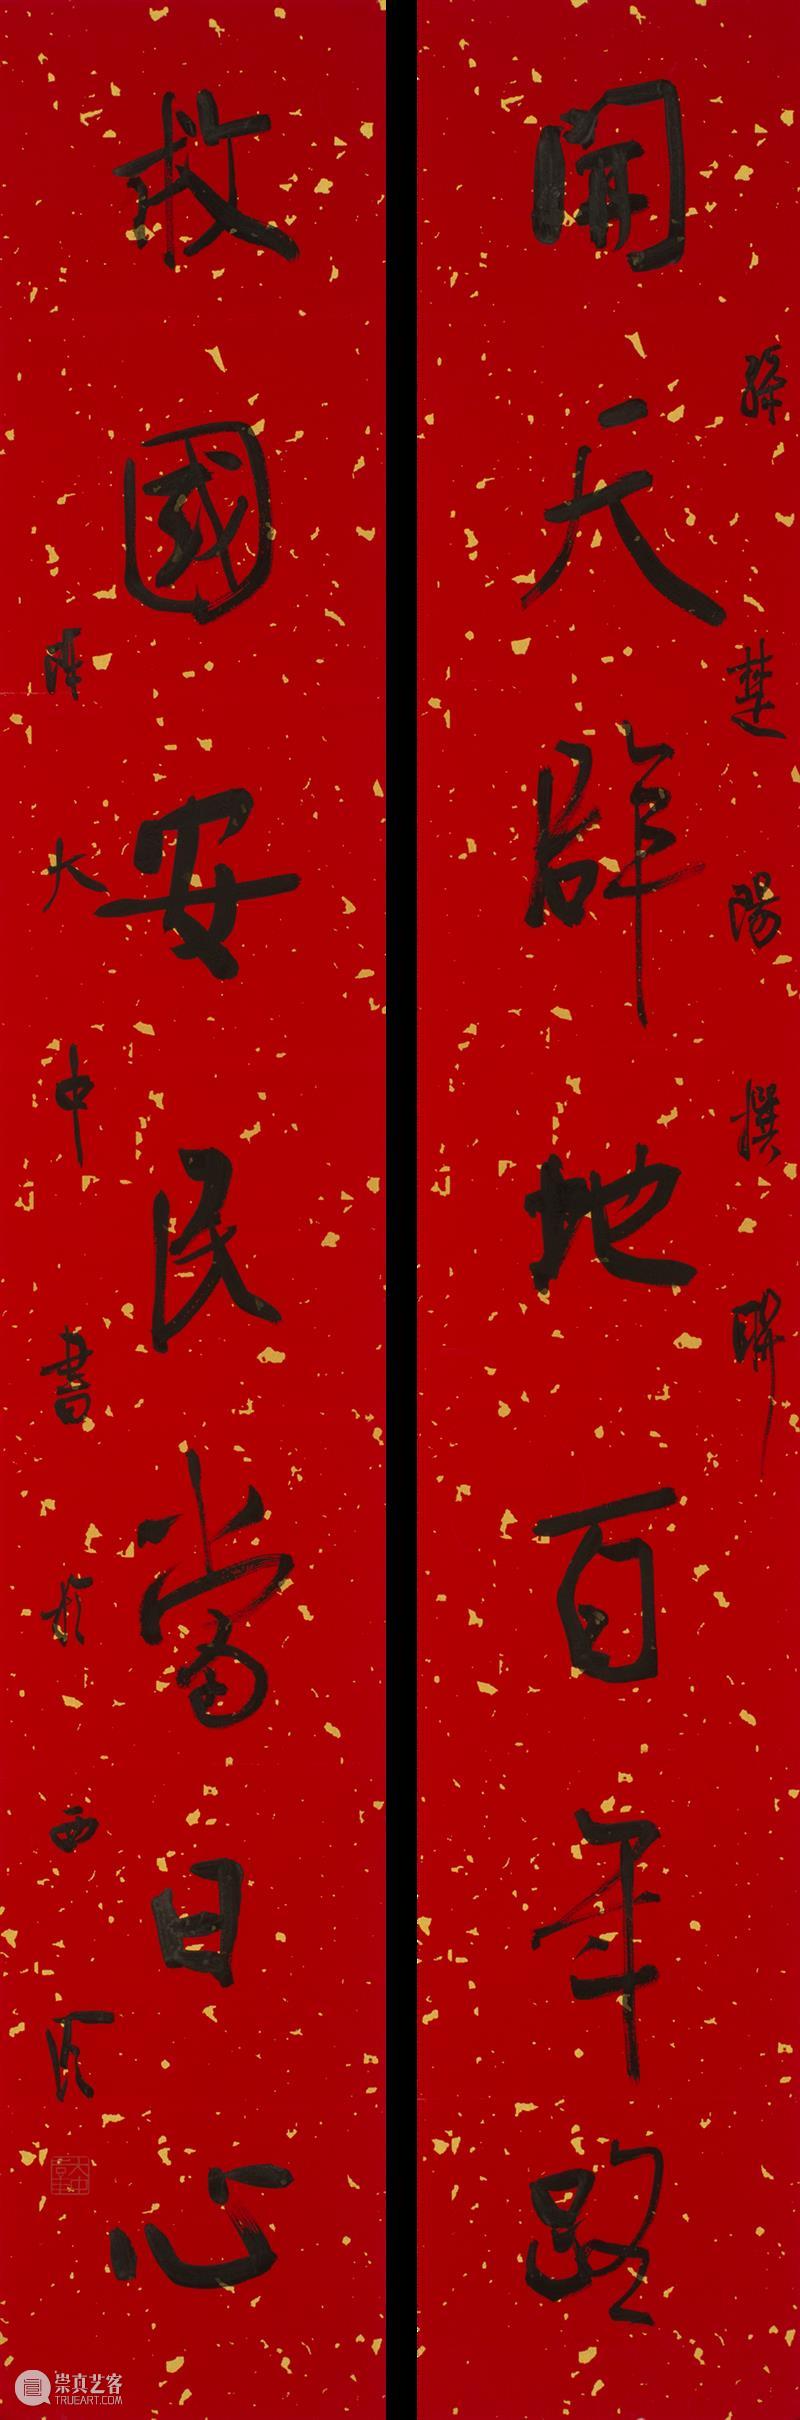 開天辟地百年路
孫楚陽撰聯
救國安民當日心
陳大中書於西泠
大中
崇真艺客
TRUEART.COM